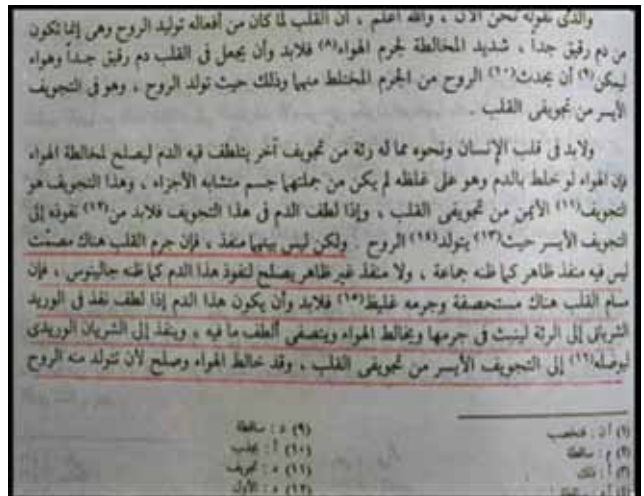 والذى نقوله نحن الآن ، والله أعلم ، أن القلب لما كان من أفعاله توليد الروح وهى إنما تكون
من دم رقيق جداً ، شديد المخالطة لجرم الهواء(٨) فلابد وأن يجعل فى القلب دم رقيق جداً وهواء
ليمكن(٩) أن يحدث(١٠) الروح من الجرم المختلط منهما وذلك حيث تولد الروح ، وهو فى التجويف
الأيسر من تجويفى القلب .
ولابد فى قلب الإنسان ونحوه مما له رئة من تجويف آخر يتلطف فيه الدم ليصلح لمخالطة الهواء
فإن الهواء لو خلط بالدم وهو على غلظه لم يكن من جملتهما جسم متشابه الأجزاء ، وهذا التجويف هو
التجويف(١١) الأيمن من تجويفى القلب ، وإذا لطف الدم فى هذا التجويف فلابد من(١٢) نفوذه إلى
التجويف الأيسر حيث(١٣) يتولد(١٤) الروح . ولكن ليس بينهما منفذ ، فإن جرم القلب هناك مصمت
ليس فيه منفذ ظاهر كما ظنه جماعة ، ولا منفذ غير ظاهر يصلح لنفوذ هذا الدم كما ظنه جالينوس ، فإن
مسام القلب هناك مستحصفة وجرمه غليظ(١٥) فلابد وأن يكون هذا الدم إذا لطف نفذ فى الوريد
الشريانى إلى الرئة لينبث فى جرمها ويخالط الهواء ويتصفى ألطف ما فيه ، وينفذ إلى الشريان الوريدى
ليوصله(١٦) إلى التجويف الأيسر من تجويفى القلب ، وقد خالط الهواء وصلح لأن تتولد منه الروح
(٩) د : ساقطة
(١٠) أ :
(١١) د : تجويف
(١٢) د : الأول
(٢) م : ساقطة
(٣) أ : ذلك